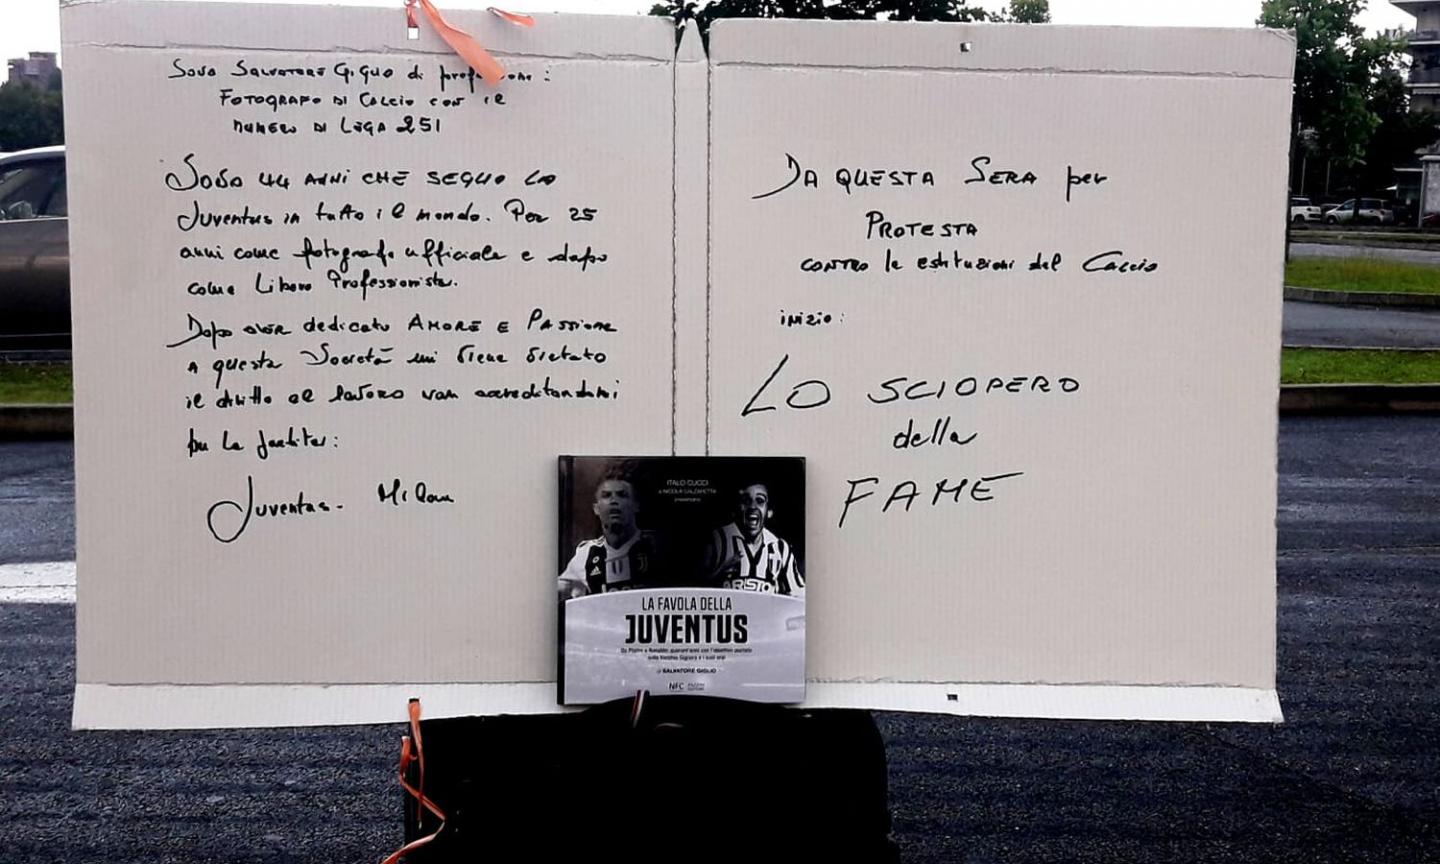 Sono Salvatore Giglio di professione:
FOTOGRAFO DI CALCIO CON IL
NUMERO DI LEGA 251
SONO 44 ANNI CHE SEGUO LA
Juventus in tutto il mondo. Per 25
anni come fotografo ufficiale e dopo
come Libero Professionista.
Dopo aver dedicato AMORE E PASSIONE
A questa Società mi viene vietato
il diritto al lavoro non accreditandomi
per la partita:
Juventus - Milan
DA QUESTA SERA per
PROTESTA
CONTRO le estituzioni del Calcio
inizio:
LO SCIOPERO
della
FAME
ITALO CUCCI
e NICOLA CALZARETTA
presentano
ARISTON
LA FAVOLA DELLA
JUVENTUS
Da Platini a Ronaldo: quarant'anni con l'obiettivo puntato
sulla Vecchia Signora e i suoi eroi
di SALVATORE GIGLIO
NFC